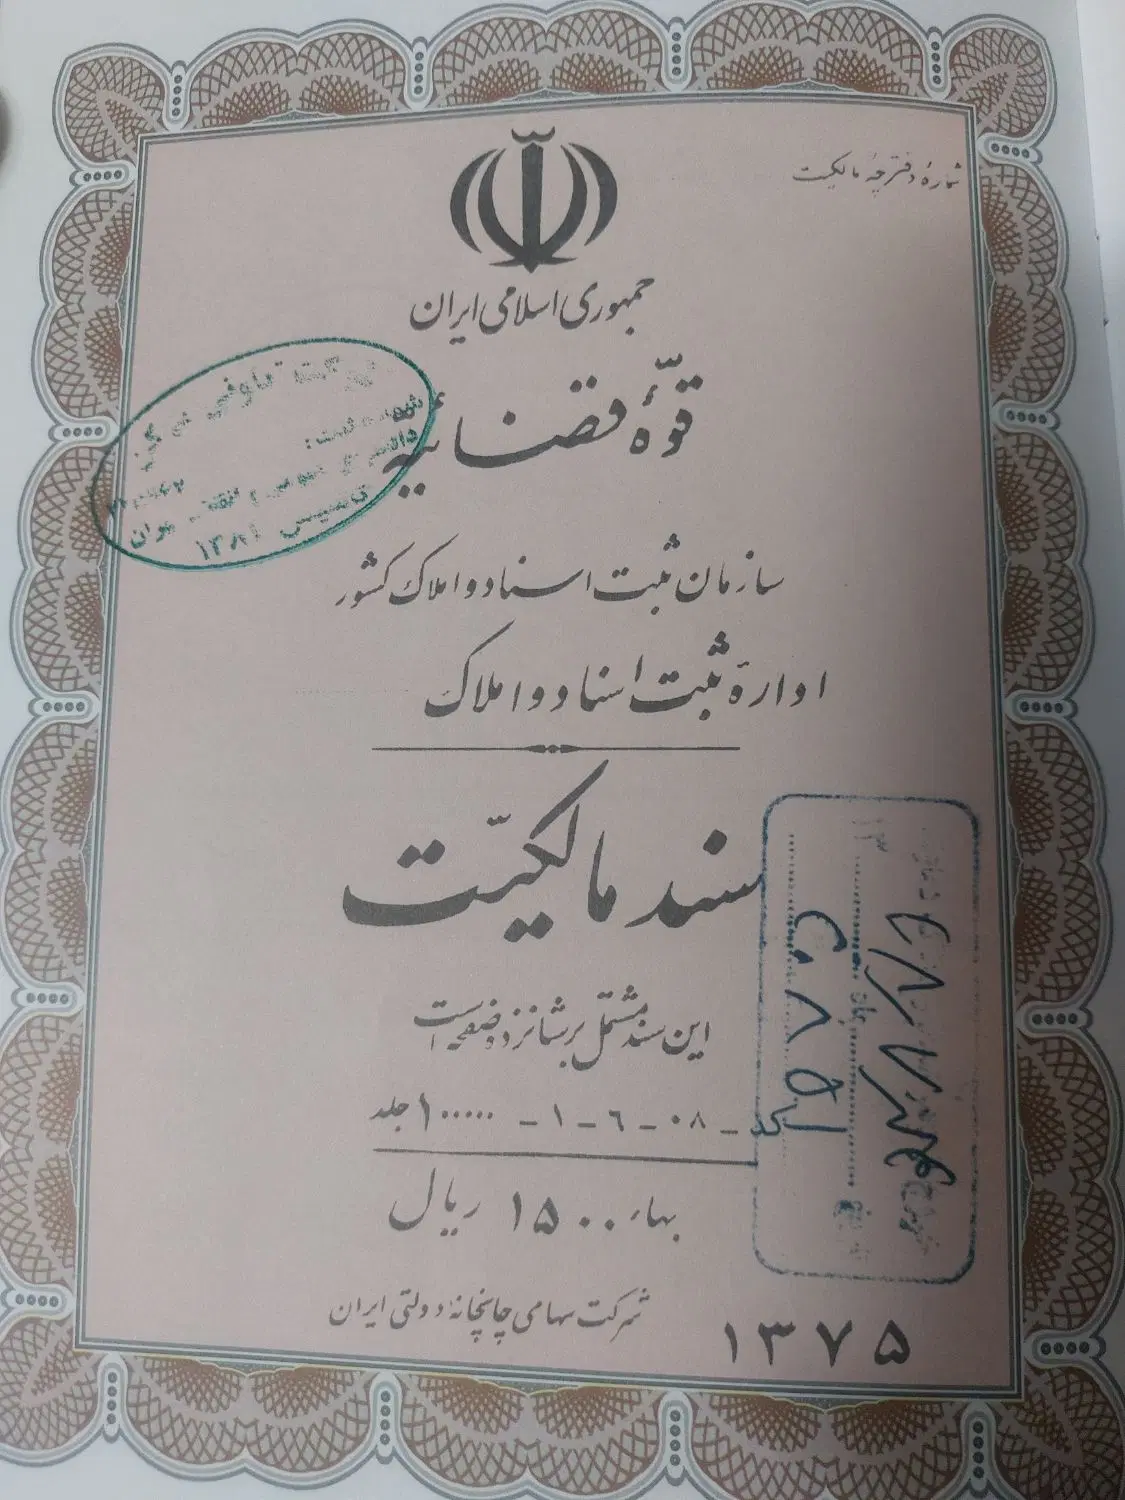 شمارهٔ دفترچهٔ مالکیت
جمهوری اسلامی ایران
قوّهٔ قضائیّه
شرکت تعاونی
شماره ثبت:
دادسرای عمومی و انقلاب تهران
تاسیس ۱۳۸۱
سازمان ثبت اسناد و املاک کشور
ادارهٔ ثبت اسناد و املاک
سند مالکیّت
این سند مشتمل بر شانزده صفحه است
کد _ ۰۸ _ ۶ _ ۱ _ ۱۰۰۰۰۰ جلد
بهاء ۱۵۰۰ ریال
شرکت سهامی چاپخانهٔ دولتی ایران
۱۳۷۵